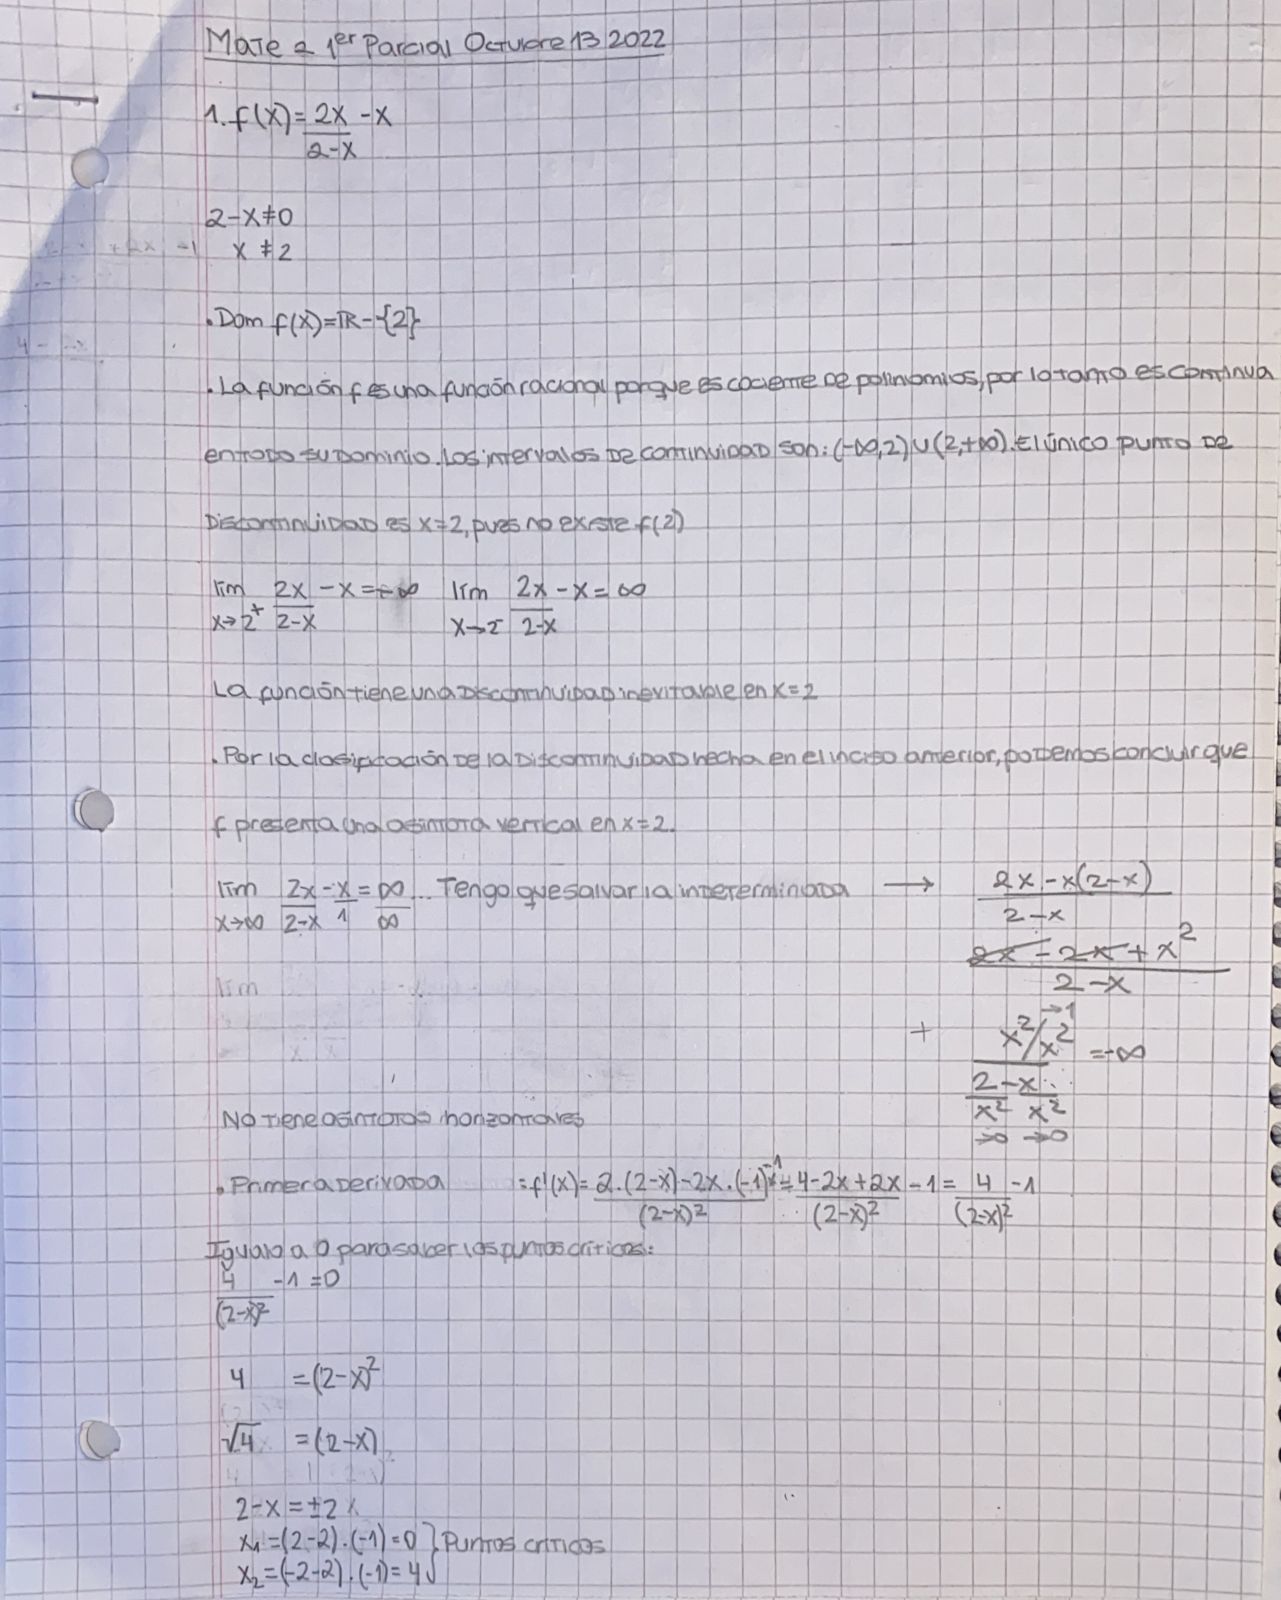 Mate 2 1er Parcial Octubre 13 2022
1. f(x) = 2x/(2-x) - x
2-x≠0
x ≠ 2
. Dom f(x)=ℝ-{2}
. La función f es una función racional porque es cociente de polinomios, por lo tanto es continua
en todo su dominio. Los intervalos de continuidad son: (-∞,2)∪(2,+∞). El único punto de
discontinuidad es x=2, pues no existe f(2)
lim x→2⁺ 2x/(2-x) - x = -∞ lim x→2⁻ 2x/(2-x) - x = ∞
La función tiene una discontinuidad inevitable en x=2
. Por la clasificación de la discontinuidad hecha en el inciso anterior, podemos concluir que
f presenta una asintota vertical en x=2.
lim x→∞ 2x/(2-x) - x/1 = ∞/∞ ... Tengo que salvar la indeterminada → (2x-x(2-x))/(2-x)
(2x-2x+x²)/(2-x)
+ (x²/x²)/(2/x² - x/x²) = -∞
→1
→0 →0
No tiene asintotas horizontales
. Primera derivada = f'(x) = (2.(2-x)-2x.(-1))/(2-x)² -1 = (4-2x+2x)/(2-x)² - 1 = 4/(2-x)² - 1
Igualo a 0 para saber los puntos criticos:
4/(2-x)² - 1 = 0
4 = (2-x)²
√4 = (2-x)
2-x = ±2
x₁ = (2-2).(-1) = 0 } Puntos criticos
x₂ = (-2-2).(-1) = 4